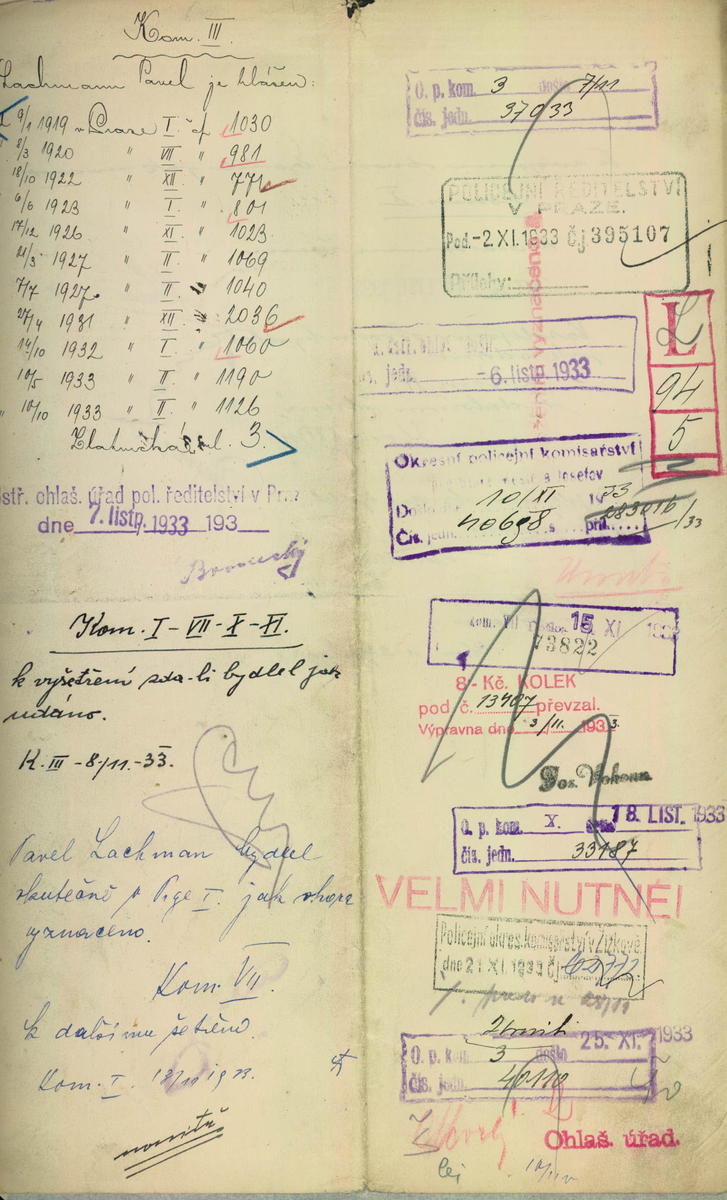 Kom. III.
Lachmann Pavel je hlášen:
9/1 1919 v Praze I. čp 1030
8/3 1920 " VII " 981
18/10 1922 " XII " 771
6/6 1923 " I. " 801
17/12 1926 " XI " 1023
21/3 1927 " II " 1069
7/7 1927 " II " 1040
27/4 1931 " XII " 2036
14/10 1932 " I " 1060
10/5 1933 " II " 1190
10/10 1933 " II " 1126
3.
ústř. ohlaš. úřad pol. ředitelství v Pra
dne 7. listp. 1933 193
Kom. I - VII - X - XI.
k vyšetření zda-li bydlel jak
udáno.
K. III - 8/11. - 33.
Pavel Lachman bydlel
skutečně v Prze I. jak shora
vyznačeno.
Kom. VII.
k dalšímu šetření.
Kom. I. 13/11 1933.
O. p. kom. 3 došlo 7/11
čís. jedn. 37933
POLICEJNÍ ŘEDITELSTVÍ
V PRAZE.
Pod. -2.XI.1933 čj 395107
Přílohy:
L
94
5
-6. listp. 1933
Okresní policejní komisařství
Josefov
Došlo 10/XI 1933
Čís. jedn. 40698 s příl.
/33
15 XI
73822
8- Kč. KOLEK
pod č. 13407 převzal.
Výpravna dne 3/11. 1933.
Jos. Vohoun
O. p. kom. X. 18. LIST. 1933
čís. jedn. 33187
VELMI NUTNÉ!
Policejní okres. komisařství v Žižkově
dne 21 XI. 1933 čj
25. XI. 1933
O. p. kom. 3 došlo
čís. jedn. 40110
Ohlaš. úřad.